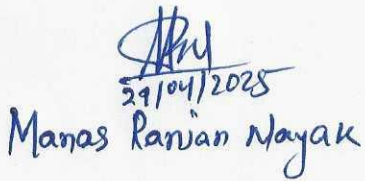 29/04/2025
Manas Ranjan Nayak